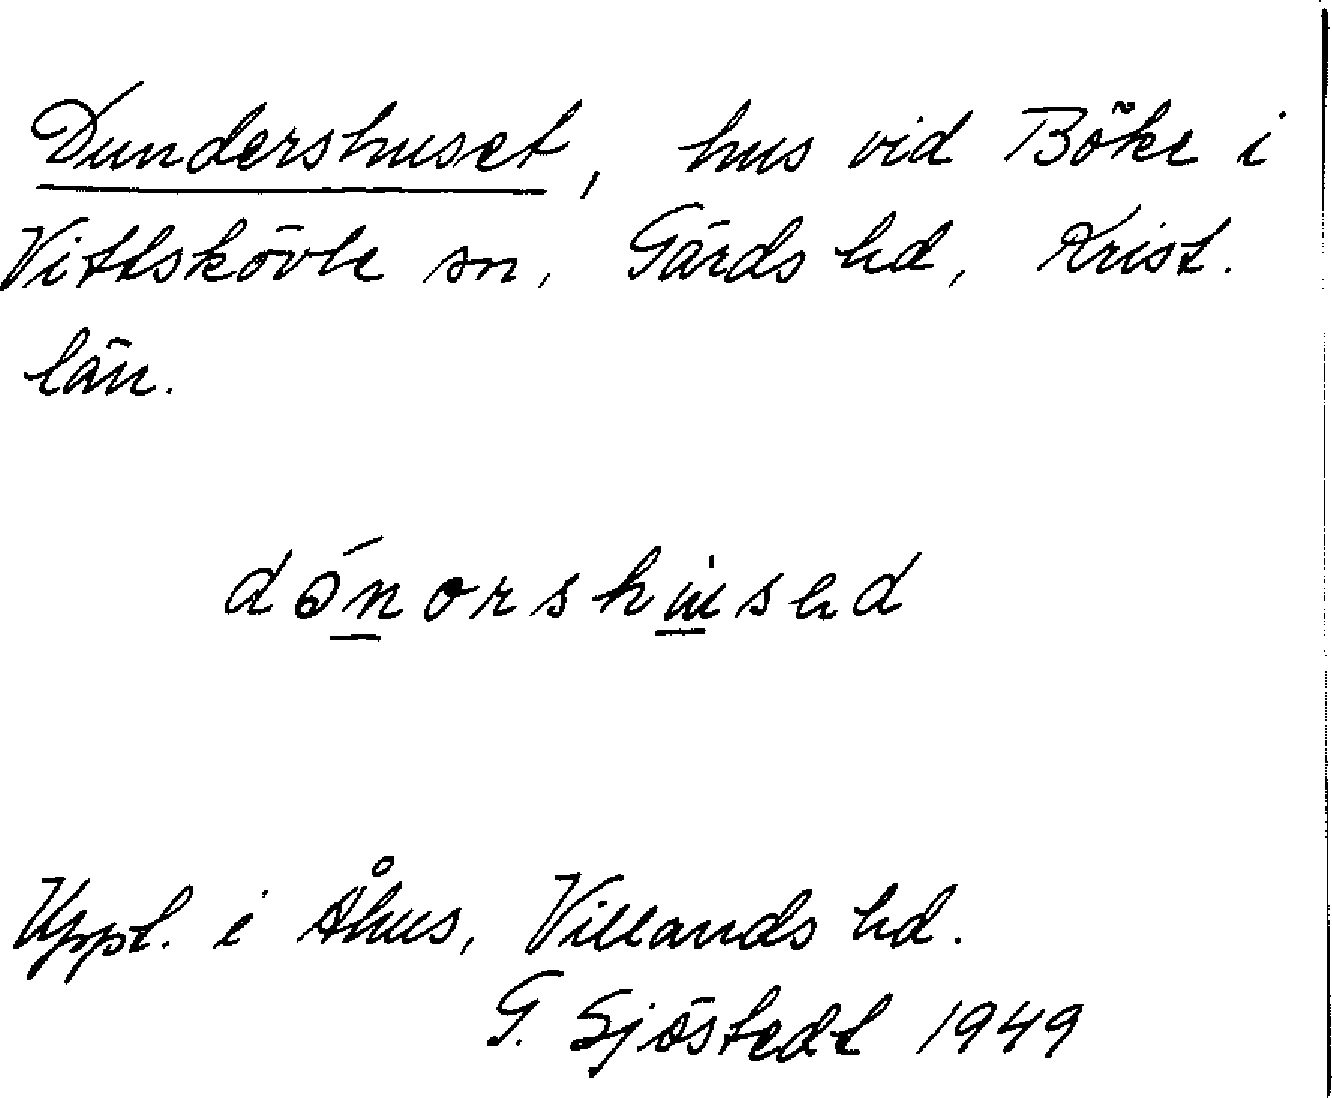 Dundershuset, hus vid Böke i
Vittskövle sn, Gärds hd, Krist.
län.
Uppl. i Åhus, Villands hd.
G. Sjöstedt 1949